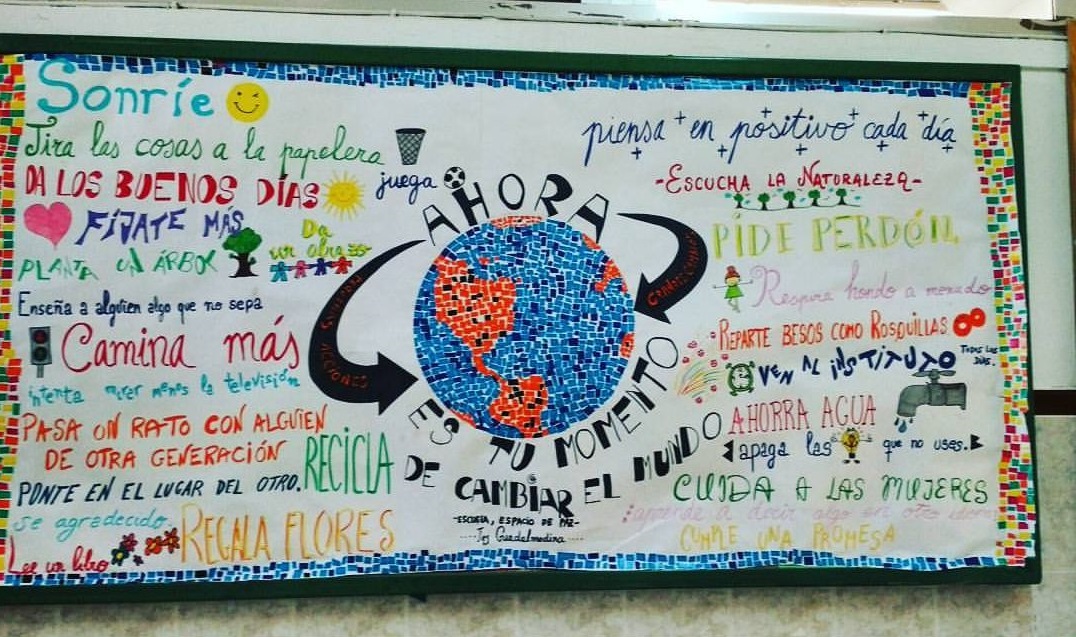 Sonríe
Tira las cosas a la papelera
DA LOS BUENOS DÍAS
juega
FÍJATE MÁS
Da
un abrazo
PLANTA UN ÁRBOL
Enseña a alguien algo que no sepa
Camina más
intenta mirar menos la televisión
PASA UN RATO CON ALGUIEN
DE OTRA GENERACIÓN
RECICLA
PONTE EN EL LUGAR DEL OTRO.
se agradecido
REGALA FLORES
Lee un libro
AHORA
PEQUEÑAS
ACCIONES
GRANDES CAMBIOS
ES TU MOMENTO
DE CAMBIAR EL MUNDO
-ESCUELA, ESPACIO DE PAZ-
Ies Guadalmedina
piensa en positivo cada día
-ESCUCHA LA NATURALEZA-
PÍDE PERDÓN.
Respira hondo a menudo
REPARTE BESOS COMO ROSQUILLAS
VEN AL INSTITUTO TODOS LOS
DÍAS.
AHORRA AGUA
apaga las que no uses.
CUIDA A LAS MUJERES
aprende a decir algo en otro idioma
CUMPLE UNA PROMESA